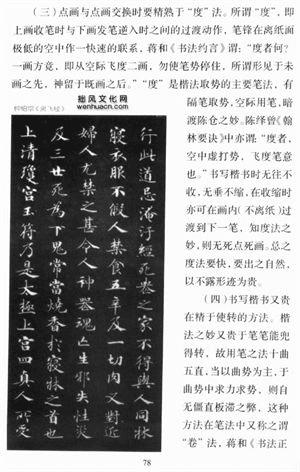 (三)点画与点画交换时要精熟于“度”法。所谓“度”,即
上画收笔时与下画发笔逆入时之间的过渡动作,笔锋在离纸面
极低的空中作一快速的联系,蒋和《书法约言》谓:“度者何?
一画方竟,即从空际飞度二画,勿使笔势停住,所谓形见于未
画之先,神留于既画之后。”“度”是楷法取势的主要笔法,有
拙风文化网
wenhuacn.com
钟绍京《灵飞经》
隔笔取势,空际用笔,暗
渡陈仓之妙。陈绎曾《翰
林要诀》中亦谓:“度者,
空中虚打势,飞度笔意
也。”书写楷书时无往不
收,无垂不缩,在收缩时
亦可在画内(不离纸)过
渡到下一笔,知度法之
妙,则无死点死画。总之
度法要快,要出之自然,
以不露形迹为贵。
(四)书写楷书又贵
在精于使转的方法。楷
法之妙又贵于笔笔能兜
得转,故用笔之法十曲
五直,当以曲势为主,于
曲势中求力求势,则自
无僵直板滞之弊,这种
方法在笔法中又称之谓
“卷”法,蒋和《书法正
行此道忌淹汙经死丧之家不得与人同床
寝衣服不假人禁食五辛及一切肉又对近
妇人尤禁之甚令人神器魂亡生邪失性灾
及三世死为下鬼常当烧香于寝床之首也
上清琼宫玉符乃是太极上宫四真人所受
78